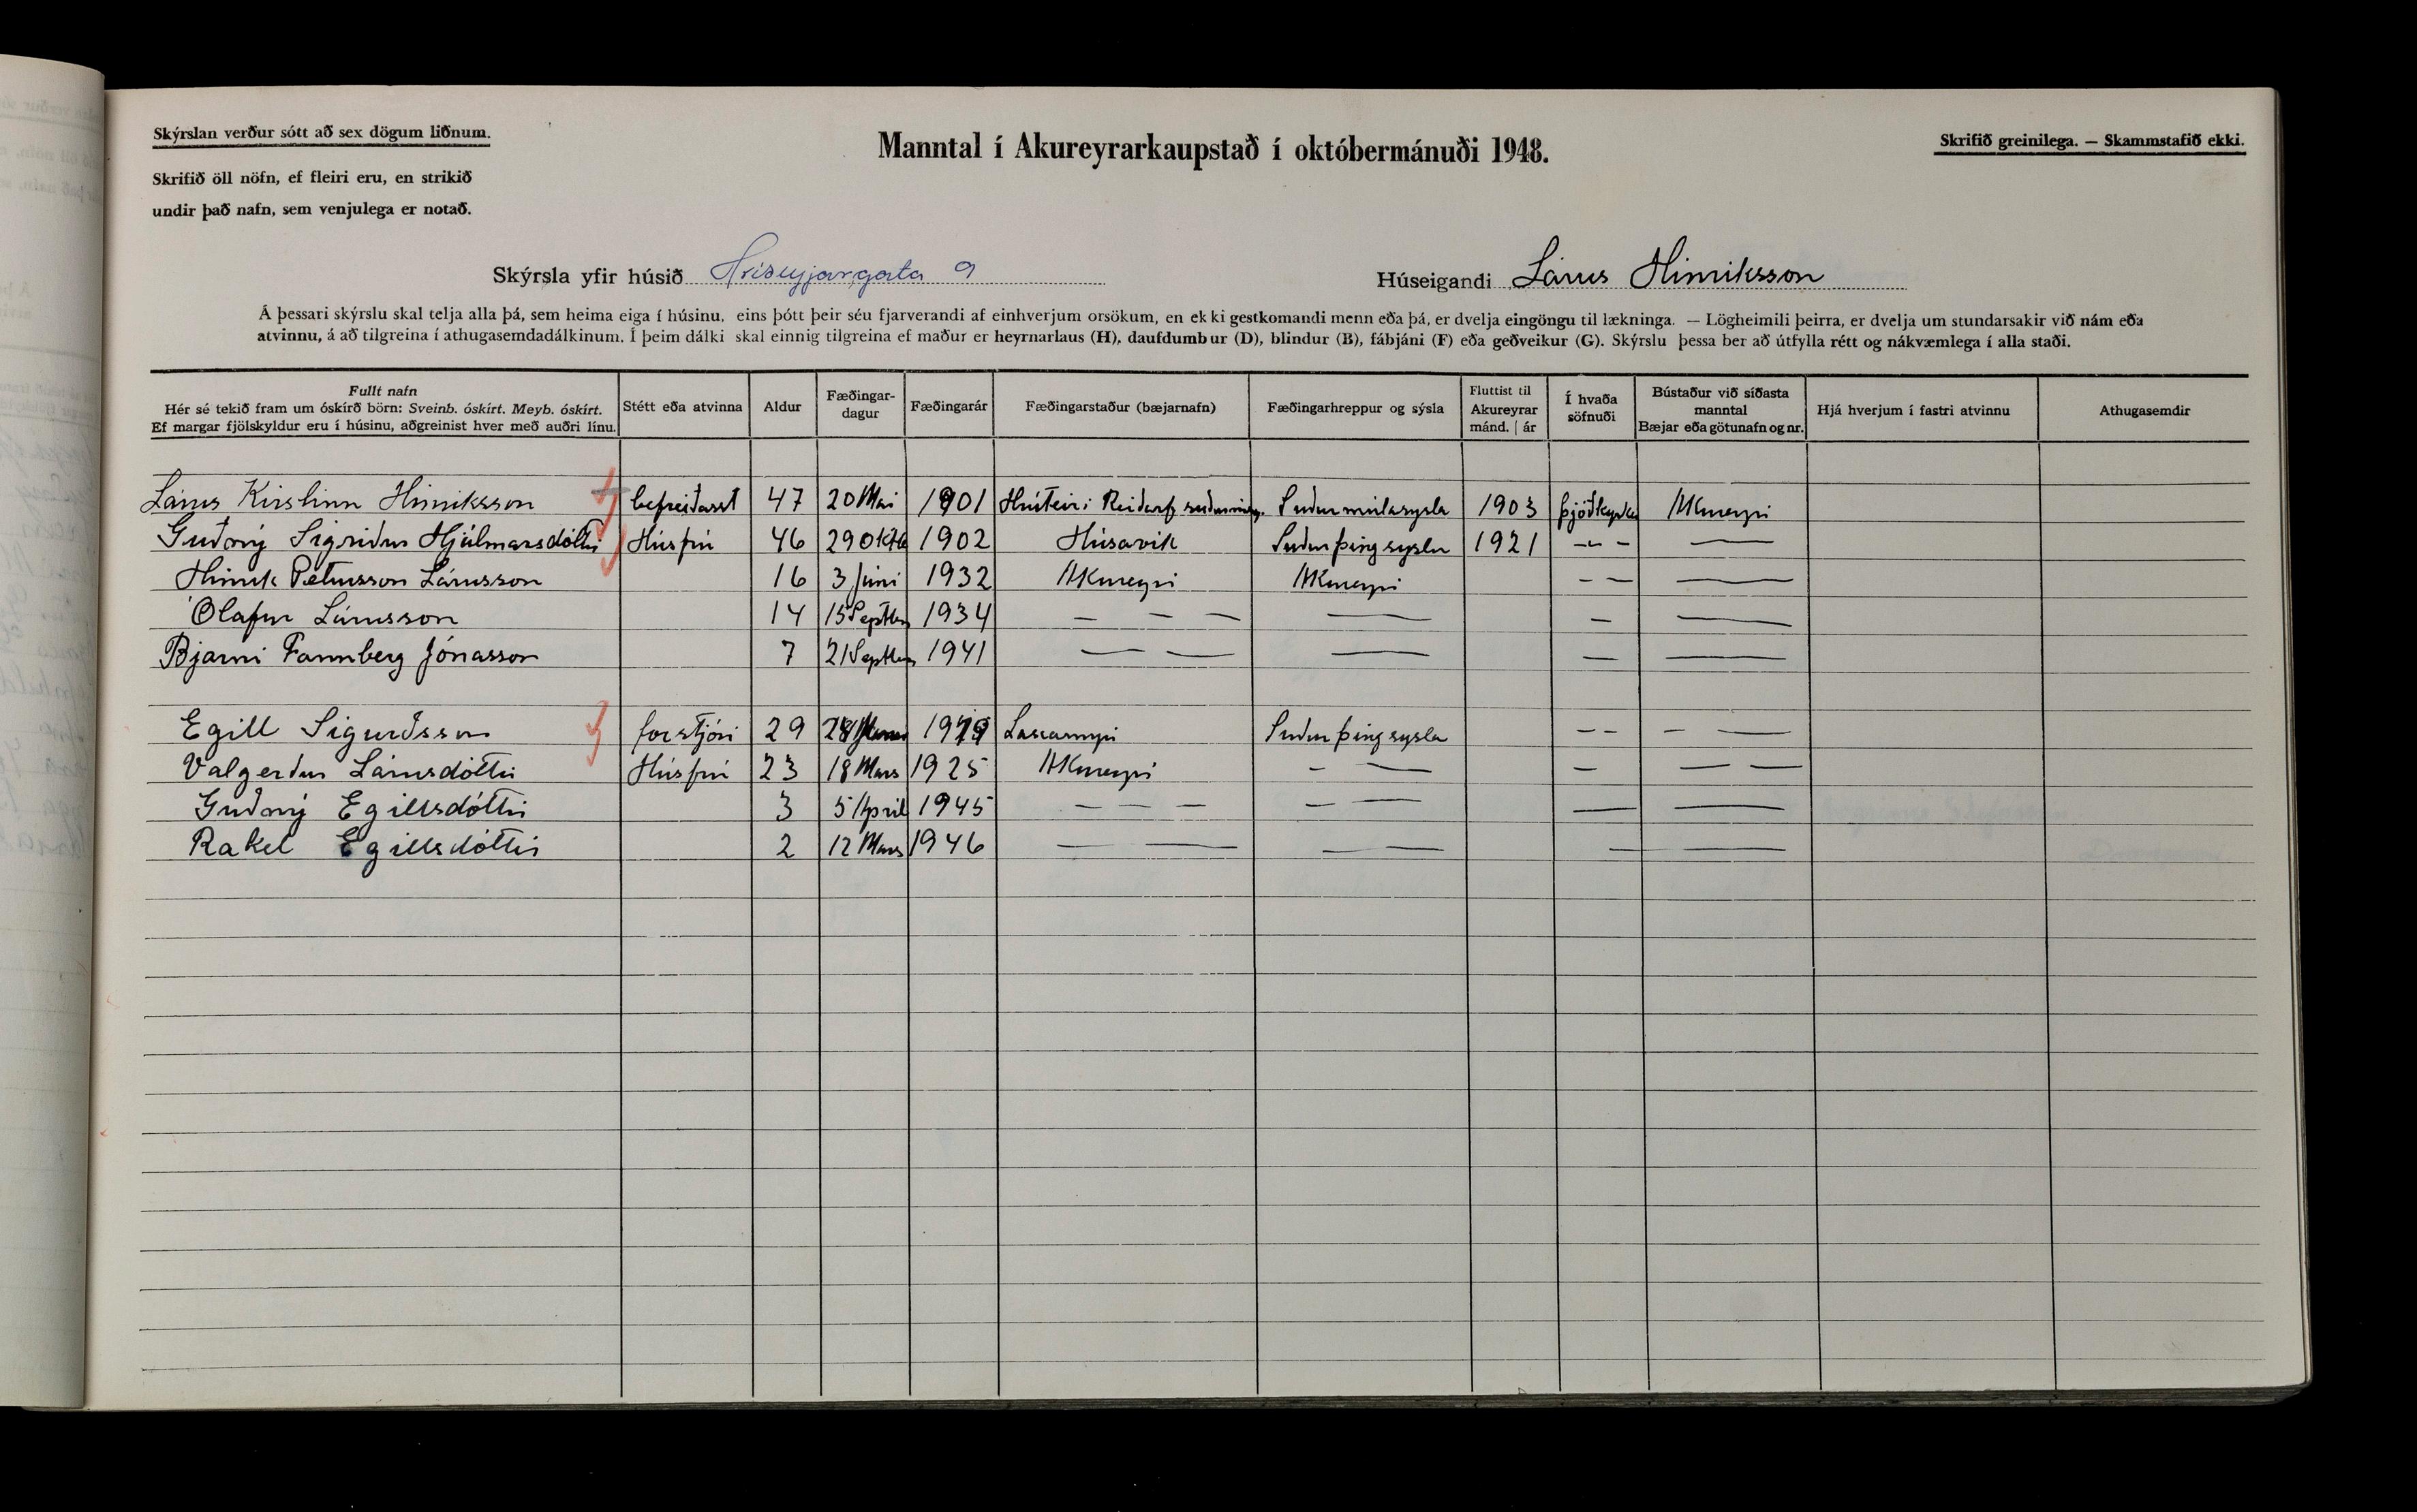 Skýrslan verður sótt að sex dögum liðnum.
Skrifið öll nöfn, ef fleiri eru, en strikið
undir það nafn, sem venjulega er notað.
Manntal í Akureyrarkaupstað í októbermánuði 1948.
Skrifið greinilega. — Skammstafið ekki.
Skýrsla yfir húsið Hríseyjargata 9
Húseigandi Lárus Hinriksson
Á þessari skýrslu skal telja alla þá, sem heima eiga í húsinu, eins þótt þeir séu fjarverandi af einhverjum orsökum, en ekki gestkomandi menn eða þá, er dvelja eingöngu til lækninga. — Lögheimili þeirra, er dvelja um stundarsakir við nám eða
atvinnu, á að tilgreina í athugasemdadálkinum. Í þeim dálki skal einnig tilgreina ef maður er heyrnarlaus (H), daufdumbur (D), blindur (B), fábjáni (F) eða geðveikur (G). Skýrslu þessa ber að útfylla rétt og nákvæmlega í alla staði.
Fullt nafn
Hér sé tekið fram um óskírð börn: Sveinb. óskírt. Meyb. óskírt.
Ef margar fjölskyldur eru í húsinu, aðgreinist hver með auðri línu.
Stétt eða atvinna
Aldur
Fæðingar-
dagur
Fæðingarár
Fæðingarstaður (bæjarnafn)
Fæðingarhreppur og sýsla
Fluttist til
Akureyrar
mánd. | ár
Í hvaða
söfnuði
Bústaður við síðasta
manntal
Bæjar eða götunafn og nr.
Hjá hverjum í fastri atvinnu
Athugasemdir
Lárus Kirstinn Hinriksson 47 20 Mai 1901 Suðurmúlasysla 1903 þjóðkyrkju Akureyri
Guðný Sigriður Hjálmarsdóttir Húsfrú 46 29 Oktb 1902 Húsavik Suðurþingsysla 1921 — — —
Hinrik Pétursson Lárusson 16 3 Júni 1932 Akureyri Akureyri — — —
Olafur Lárusson 14 15 Septbr 1934 — — — — — —
Bjarni Fannberg Jónasson 7 21 Septbr 1941 — — — — —
Egill Sigurðsson forstjóri 29 1919 Suðurþingsysla — — — —
Valgerður Lárusdóttir Húsfrú 23 18 Mars 1925 Akureyri — — — — —
Guðný Egillsdóttir 3 5 April 1945 — — — — — — —
Rakel Egillsdóttir 2 12 Mars 1946 — — — — — —